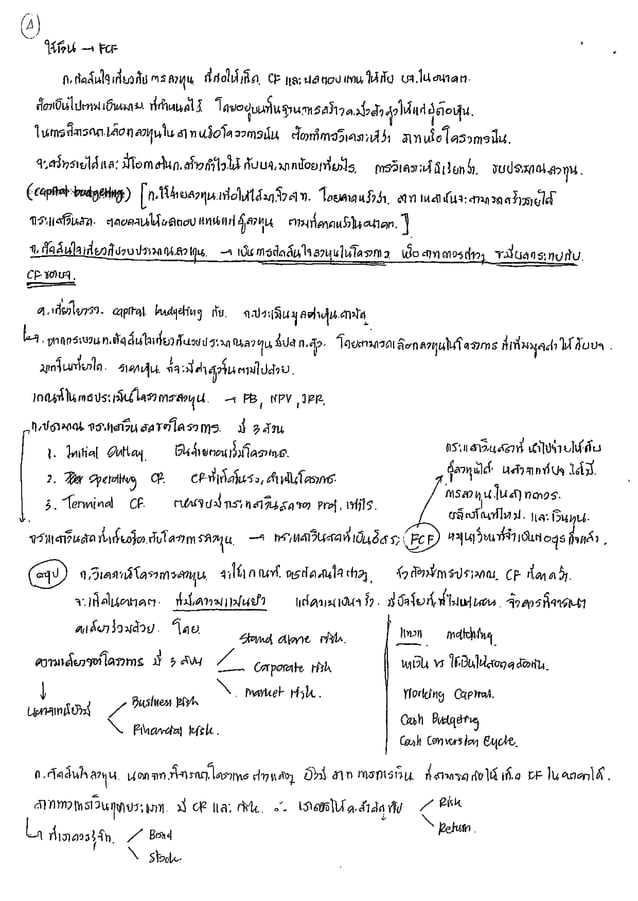 ④
ใช้เงิน → FCF
ก.ตัดสินใจเกี่ยวกับการลงทุน ที่ก่อให้เกิด CF และผลตอบแทนให้กับ บจ.ในอนาคต
ต้องเป็นไปตามเป้าหมาย ที่กำหนดไว้ โดยอยู่บนพื้นฐานการสร้าง สูงสุดให้แก่ผู้ถือหุ้น
ในการพิจารณาเลือกลงทุนใน หรือโครงการนั้น ต้องทำการวิเคราะห์ว่า หรือโครงการนั้น
จะสร้างรายได้และมีโอกาสในก.สร้างกำไรให้กับบจ.มากน้อยเพียงไร การวิเคราะห์นี้เรียกว่า งบประมาณลงทุน
(capital budgeting) [ก.ใช้จ่ายลงทุนเพื่อให้ได้มา โดยคาดหวังว่า เหล่านั้นจะสามารถสร้างรายได้
กระแสเงินสด ตลอดจนให้ผลตอบแทนแก่ผู้ลงทุน ตามที่คาดหวังในอนาคต]
ก.ตัดสินใจเกี่ยวกับงบประมาณลงทุน → เป็นการตัดสินใจลงทุนในโครงการ หรือ ต่างๆ จะมีผลกระทบกับ
CF ของบจ.
ค.เกี่ยวโยงระหว่าง capital budgeting กับ ก.ประเมินมูลค่าหุ้นสามัญ
↳ หากกระบวนก.ตัดสินใจเกี่ยวกับงบประมาณลงทุนมีปสภ.สูง โดยสามารถเลือกลงทุนในโครงการ ที่เพิ่มมูลค่าให้กับบจ.
มากขึ้นเท่าใด ราคาหุ้น ก็จะมีค่าสูงขึ้นตามไปด้วย
เกณฑ์ในการประเมินโครงการลงทุน → PB, NPV, IRR.
ก.ประมาณกระแสเงินสดของโครงการ มี 3 ส่วน
1. Initial Outlay เงินจ่ายตอนเริ่มโครงการ
2. Operating CF. CF ที่เกิดขึ้นระหว่างดำเนินโครงการ
3. Terminal CF. ตอนจบมีกระแสเงินสดของ Proj. เท่าไร
กระแสเงินสดที่นำไปจ่ายให้กับ
ผู้ลงทุนได้ หลังจากที่บจ.ได้มี
การลงทุนใน ถาวร
ผลิตภัณฑ์ใหม่ และเงินทุน
หมุนเวียนที่จำเป็นต่อธุรกิจแล้ว
กระแสเงินสดที่เกี่ยวข้องกับโครงการลงทุน → กระแสเงินสดที่เป็นอิสระ (FCF)
สรุป ก.วิเคราะห์โครงการลงทุน จะใช้เกณฑ์การตัดสินใจต่างๆ จำต้องมีการประมาณ CF ที่คาดว่า
จะเกิดในอนาคต ที่มีความแม่นยำ แต่ความเป็นจริง มีปัจจัยที่ไม่แน่นอน จึงควรพิจารณา
ค.เสี่ยงร่วมด้วย โดย
ความเสี่ยงของโครงการ มี 3 ระดับ
Stand alone risk.
Corporate risk
Market risk.
นอกจากนี้ยังมี
Business Risk
Financial Risk.
แทรก matching
หาเงิน vs ใช้เงินให้สอดคล้องกัน
Working Capital.
Cash Budgeting
Cash Conversion Cycle.
ก.ตัดสินใจลงทุน นอกจากพิจารณาโครงการต่างๆแล้ว ยังมี ทางการเงิน ที่สามารถก่อให้เกิด CF ในอนาคตได้
ทางการเงินทุกประเภท มี CF และ risk ∴ เราควรให้ค.สำคัญกับ
Risk
Return.
↳ ที่เราควรรู้จัก
Bond
Stock.